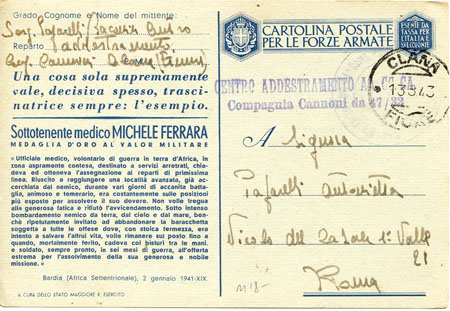 Grado Cognome e Nome del mittente:
Serg. Pafarelli
Reparto
addestramento
Clana (Fiume)
Una cosa sola supremamente
vale, decisiva spesso, trasci-
natrice sempre: l'esempio.
Sottotenente medico MICHELE FERRARA
MEDAGLIA D'ORO AL VALOR MILITARE
« Ufficiale medico, volontario di guerra in terra d'Africa, in
zona aspramente contesa, destinato a servizi arretrati, chie-
deva ed otteneva l'assegnazione ai reparti di primissima
linea. Riuscito a raggiungere una località avanzata, già ac-
cerchiata dal nemico, durante vari giorni di accanita batta-
glia, animoso e temerario, era costantemente sulle posizioni
più esposte per assolvere il suo dovere. Non volle tregua
alla generosa fatica e rifiutò l'avvicendamento. Sotto intenso
bombardamento nemico da terra, dal cielo e dal mare, ben-
chè ripetutamente invitato ad abbandonare la baracche-
soggetta a tutte le offese dove, con stoica fermezza, era
intento a salvare l'altrui vita, volle rimanere sul posto fino a
quando, mortalmente ferito, cadeva col bisturi tra le mani.
e soldato, sempre pronto, in sei mesi di guerra, all'offerta
estrema per l'assolvimento della sua generosa e nobile
missione. »
Bardia (Africa Settentrionale), 2 gennaio 1941-XIX.
A CURA DELLO STATO MAGGIORE R. ESERCITO
CARTOLINA POSTALE
PER LE FORZE ARMATE
ESENTE DA
TASSA PER
L'ITALIA E
CENTRO ADDESTRAMENTO
Compagnia Cannoni da 47/32
CLANA
13 8 43
FIUME
A Signora
Pafarelli Antonietta
Vicolo del
21
Roma